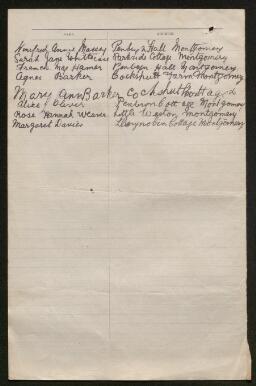 NAME. ADDRESS.
Winifred Annie Massey Penbryd Hall Montgomery
Sarah Jane Whitticase Parkside Cottage Montgomery
Frances May Hamer Penbryn Hall Montgomery
Agnes Barker Cockshutt Farm Montgomery
Mary Ann Barker Cockshutt
Alice Oliver Penbron Cottage Montgomery
Rose Hannah Weaver Little Weston Montgomery
Margaret Davies Cottage Montgomery